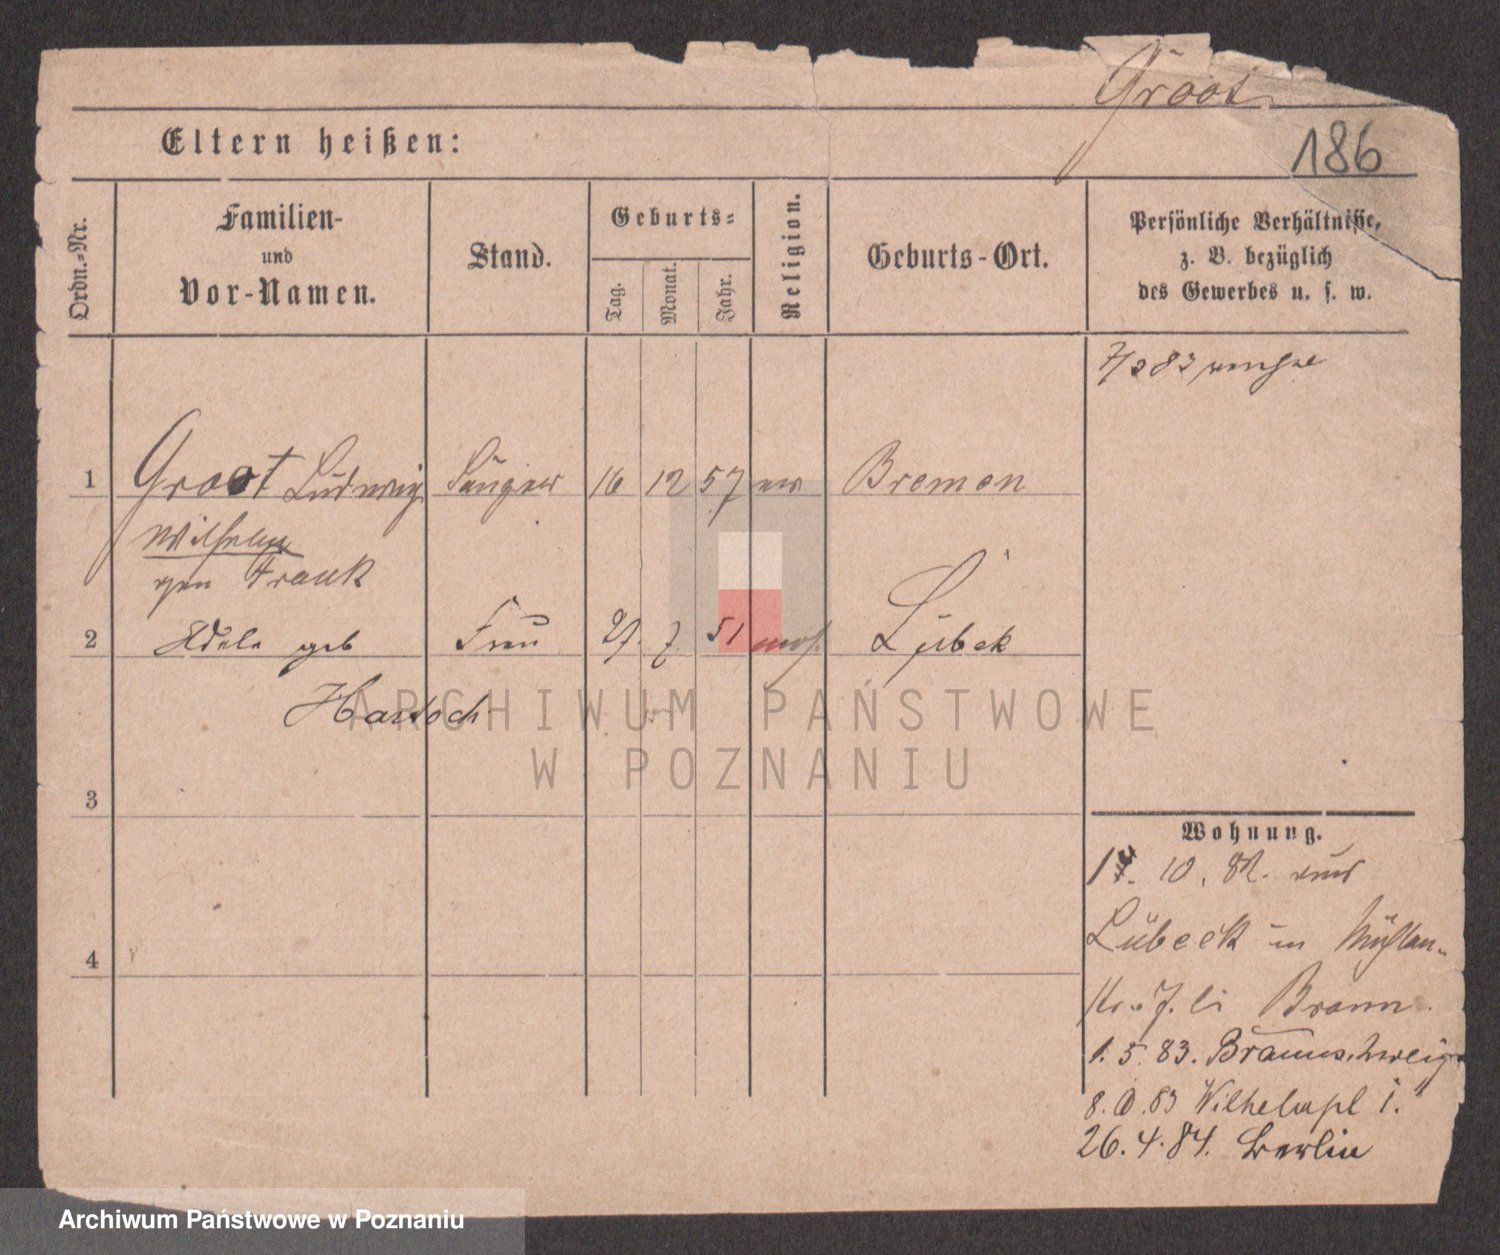 Groot
186
Eltern heißen:
Ordn.-Nr.
Familien-
und
Vor-Namen.
Stand.
Geburts-
Tag.
Monat.
Jahr.
Religion.
Geburts-Ort.
Persönliche Verhältnisse,
z. B. bezüglich
des Gewerbes u. s. w.
1 Groot Ludwig Sänger 16 12 57 ev Bremen
Wilhelm
gen Frank
2 Adele geb Frau 29. 7. 51 mos. Lübek
Hartoch
3
4
Wohnung.
10. 82. aus
Lübeck in Mühlen-
str. 7. bei
1. 5. 83. Braunschweig
8. 83 Wilhelmspl 1.
26. 4. 84. Berlin
ARCHIWUM PAŃSTWOWE
W POZNANIU
Archiwum Państwowe w Poznaniu